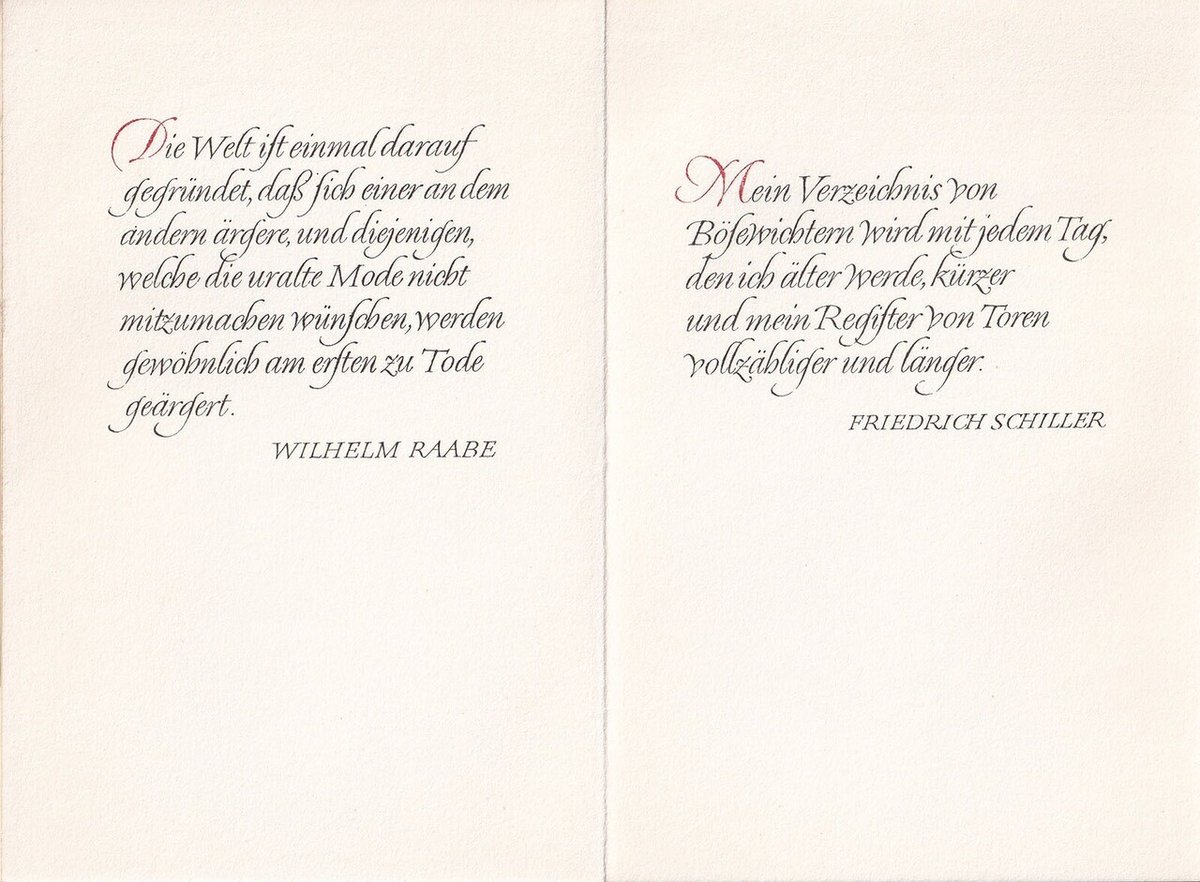 Die Welt iſt einmal darauf
gegründet, daß ſich einer an dem
andern ärgere, und diejenigen,
welche die uralte Mode nicht
mitzumachen wünſchen, werden
gewöhnlich am erſten zu Tode
geärgert.
WILHELM RAABE
Mein Verzeichnis von
Böſewichtern wird mit jedem Tag,
den ich älter werde, kürzer
und mein Regiſter von Toren
vollzähliger und länger.
FRIEDRICH SCHILLER